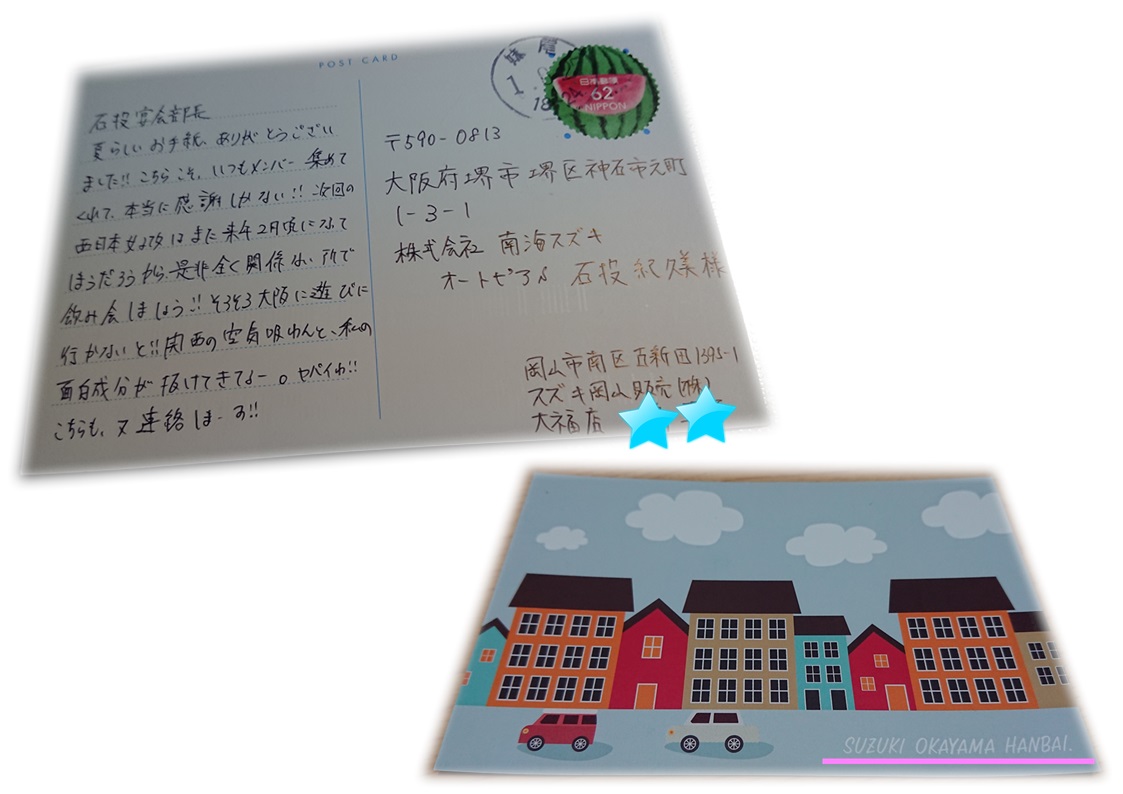 POST CARD
石投宴会部長
夏らしいお手紙、ありがとうござい
ました!! こちらこそ、いつもメンバー集めて
くれて、本当に感謝しかない!! 次回の
西日本女子改はまた来年2月頃になって
しまうだろうから、是非全く関係ない所で
飲み会しましょう!! そろそろ大阪に遊びに
行かないと!! 関西の空気吸わんと、私の
面白成分が抜けてきてよー。ヤバイわ!!
こちらも、又連絡しまーす!!
日本郵便
62
NIPPON
〒590-0813
大阪府堺市堺区神石市之町
1-3-1
株式会社 南海スズキ
オートピアル 石投紀久美様
岡山市南区古新田1395-1
スズキ岡山販売(株)
大福店
SUZUKI OKAYAMA HANBAI.